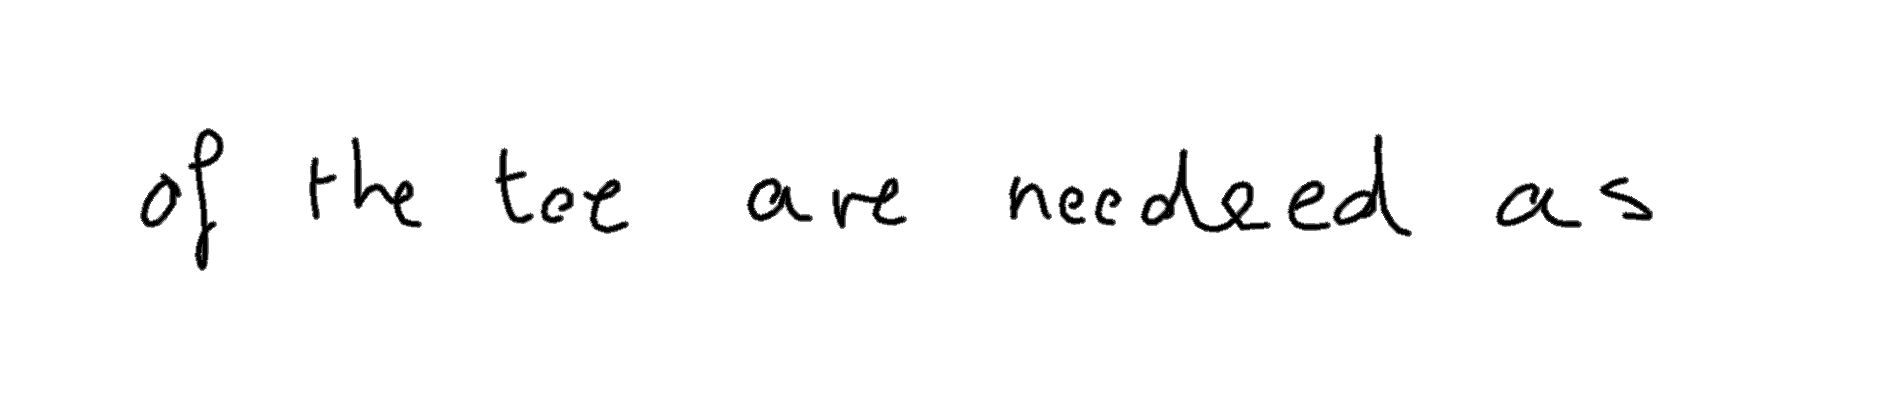 of the toe are needeed as